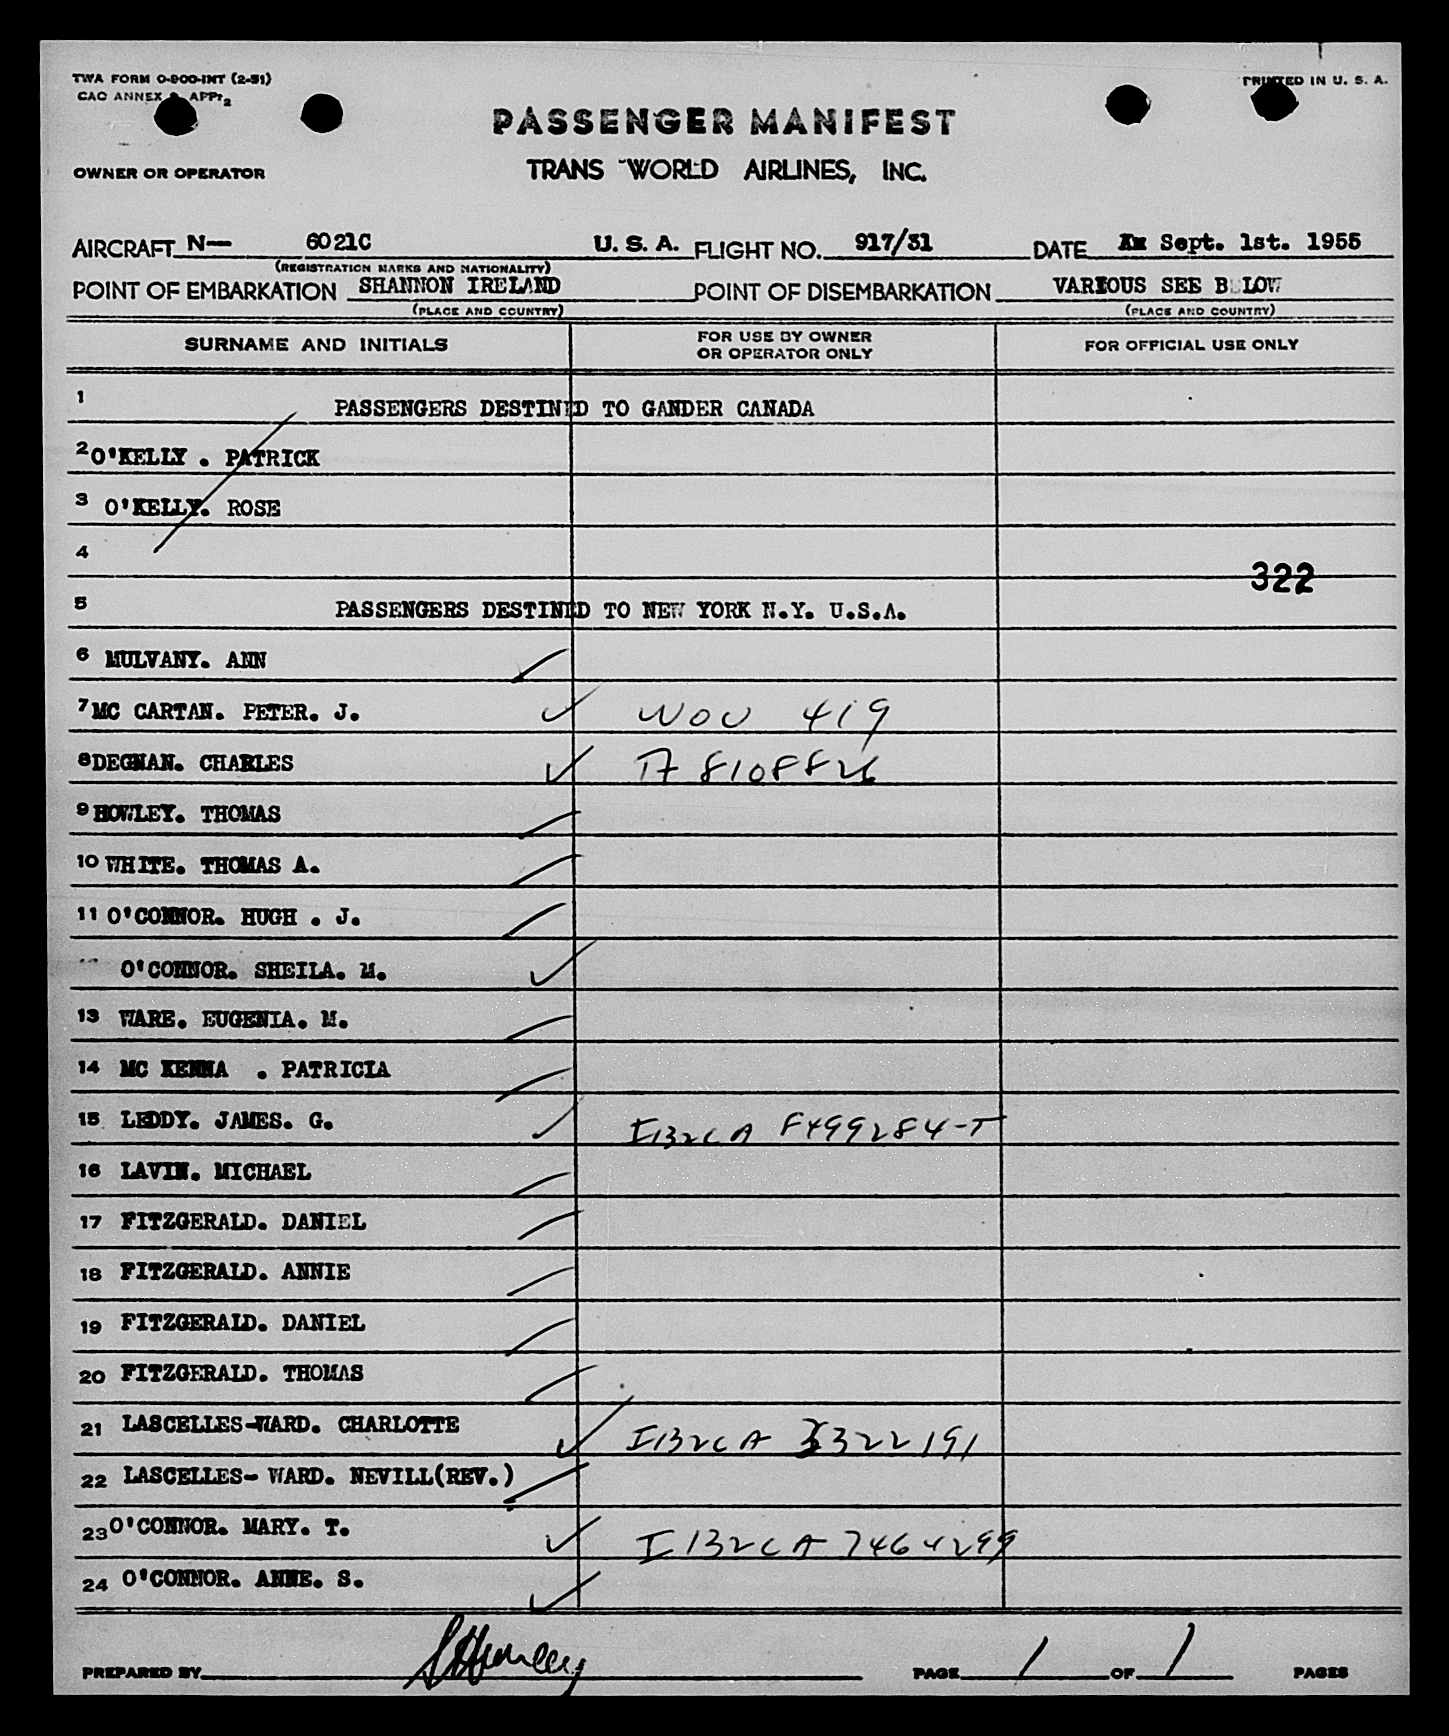 TWA FORM O-800-INT (2-51)
CAO ANNEX APP. 2
PRINTED IN U. S. A.
PASSENGER MANIFEST
OWNER OR OPERATOR
TRANS WORLD AIRLINES, INC.
AIRCRAFT N— 6021C U. S. A. FLIGHT NO. 917/31 DATE Sept. 1st. 1955
(REGISTRATION MARKS AND NATIONALITY)
POINT OF EMBARKATION SHANNON IRELAND POINT OF DISEMBARKATION VARIOUS SEE BELOW
(PLACE AND COUNTRY) (PLACE AND COUNTRY)
SURNAME AND INITIALS FOR USE BY OWNER OR OPERATOR ONLY FOR OFFICIAL USE ONLY
1 PASSENGERS DESTINED TO GANDER CANADA
2 O'KELLY . PATRICK
3 O'KELLY. ROSE
4
322
5 PASSENGERS DESTINED TO NEW YORK N.Y. U.S.A.
6 MULVANY. ANN
7 MC CARTAN. PETER. J. 419
8 DEGNAN. CHARLES A 8108826
9 HOWLEY. THOMAS
10 WHITE. THOMAS A.
11 O'CONNOR. HUGH . J.
O'CONNOR. SHEILA. M.
13 WARE. EUGENIA. M.
14 MC KENNA . PATRICIA
15 LEDDY. JAMES. G. I132CA F499284-T
16 LAVIN. MICHAEL
17 FITZGERALD. DANIEL
18 FITZGERALD. ANNIE
19 FITZGERALD. DANIEL
20 FITZGERALD. THOMAS
21 LASCELLES-WARD. CHARLOTTE I132CA 322191
22 LASCELLES- WARD. NEVILL(REV.)
23 O'CONNOR. MARY. T. I132CA
24 O'CONNOR. ANNE. S.
PREPARED BY PAGE 1 OF 1 PAGES